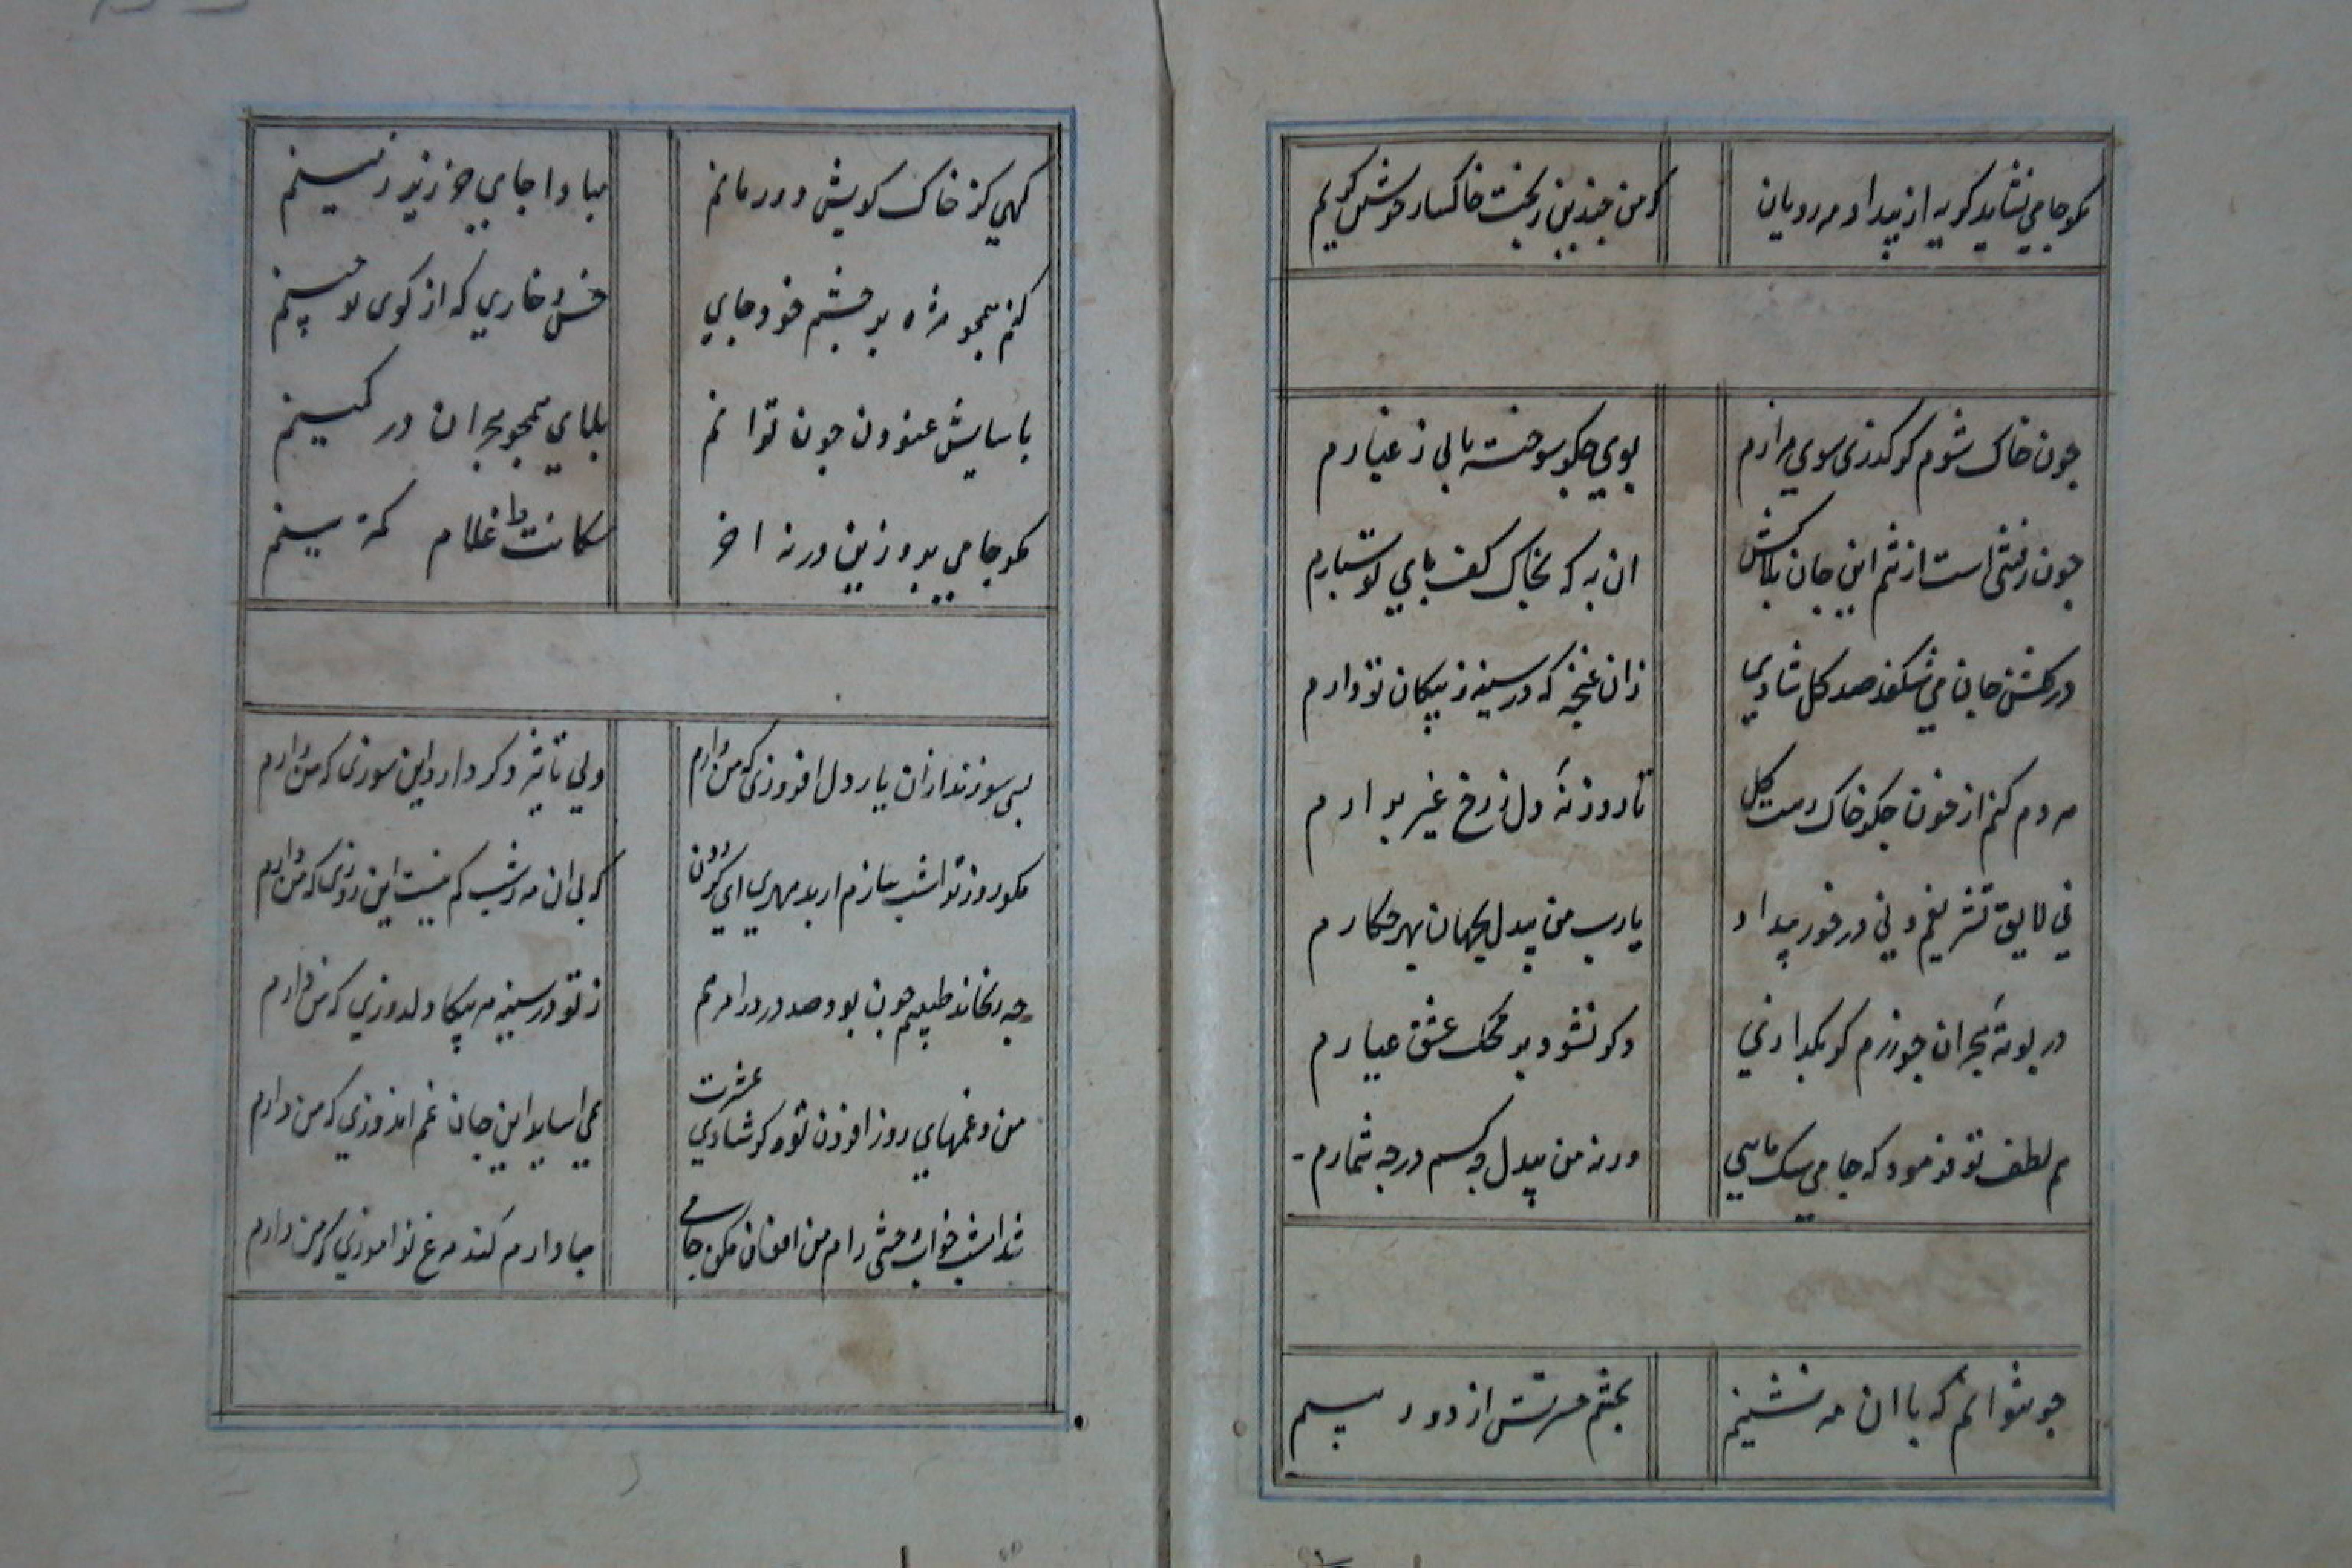 مکو جامي نشايد کريه از بيداد مه رويان
کو من چندين ز بخت خاکسار خويش کريم
چون خاک شوم کر کذری سوي مزارم
بوي جکر سوخته يابی ز غبارم
چون رفتنی است از تنم اين جان بلاکش
ان به که بخاک کف پاي تو سپارم
در کلشن جان مي شکفد صد کل شادي
زان غنچه که در سينه ز پيکان تو دارم
هر دم کنم از خون جکر خاک رهت کل
تا روزنهٔ دل ز رخ غير برارم
ني لايق تشريفم و ني درخور بيداد
يارب من بيدل بجهان بهر چکارم
در بوتهٔ هجران چو زرم کر بکدازي
دکر نشود بر محک عشق عيارم
هم لطف تو فرمود که جامي سک مايي
ورنه من بيدل چه کسم درچه شمارم
چو نتوانم که با ان مه نشينم
بچشم حسرتش از دور بينم
کهي کز خاک کويش دور مانم
مبادا جاي جز زير زمينم
کنم همچو مژه بر چشم خود جاي
خس و خاري که از کوی تو چينم
باسايش غنودن چون توانم
بلاي همچو هجران در کمينم
مکو جامي برو زين در نه اخر
سکانت را غلام کمترينم
بسی سوزند ازان يار دل افروزی که من دارم
ولي تاثير دکر دارد اين سوزی که من دارم
مکو روز ترا شب سازم از بد مهري اي کردون
که بی ان مه ز شب کم نيست اين روزی که من دارم
چه رنجاند طبيبم چون بود صد درد را مرهم
ز تو در سينه هر پيکان دلدوزي که من دارم
من و غمهاي روز افزون تو هر کو شادي عشرت
نمي اسايد اين جان غم اندوزي که من دارم
شد امشب خواب وحشی رام من افغان مکن جامی
مبادا رم کند مرغ نو اموزي که من دارم